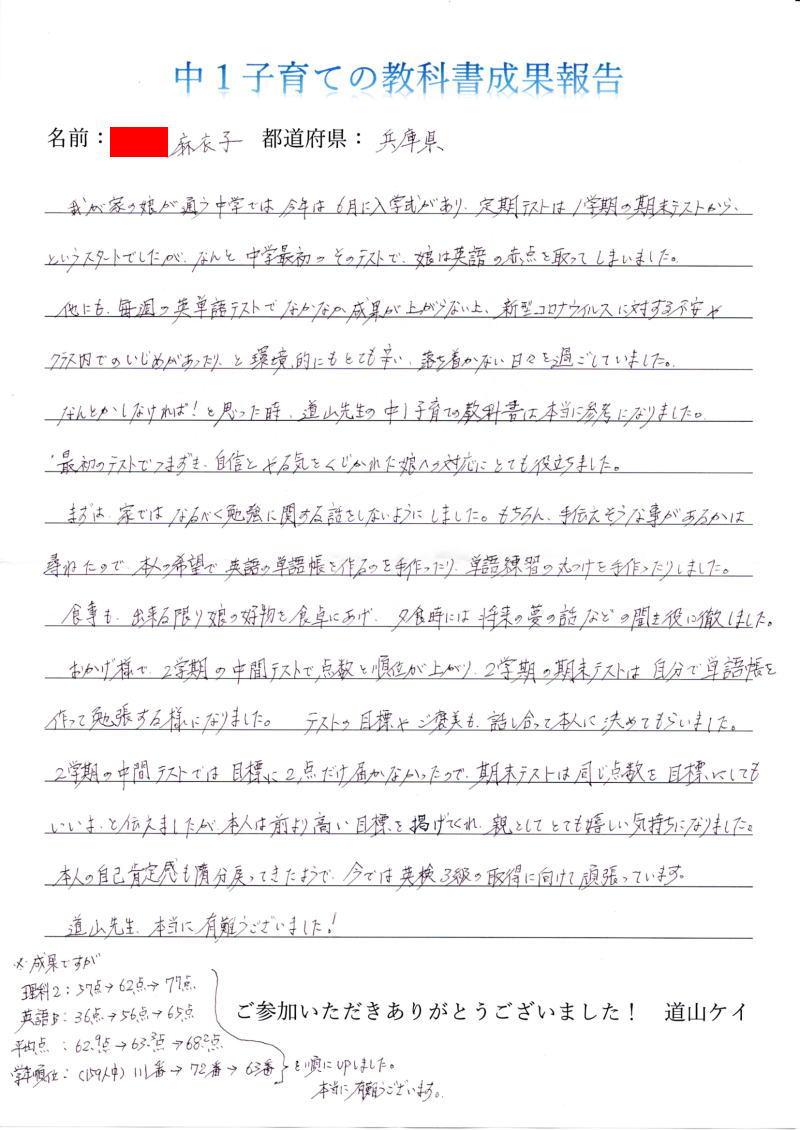 中１子育ての教科書成果報告
名前： 麻衣子 都道府県： 兵庫県
我が家の娘が通う中学では今年は6月に入学式があり、定期テストは1学期の期末テストから、
というスタートでしたが、なんと中学最初のそのテストで、娘は英語の赤点を取ってしまいました。
他にも、毎週の英単語テストでなかなか成果が上がらない上、新型コロナウイルスに対する不安や
クラス内でのいじめがあったり、と環境的にもとても辛い、落ち着かない日々を過ごしていました。
なんとかしなければ！と思った時、道山先生の中1子育ての教科書は本当に参考になりました。
最初のテストでつまずき、自信とやる気をくじかれた娘への対応にとても役立ちました。
まずは、家ではなるべく勉強に関する話をしないようにしました。もちろん、手伝えそうな事があるかは
尋ねたので、本人の希望で英語の単語帳を作るのを手伝ったり、単語練習の丸つけを手伝ったりしました。
食事も、出来る限り娘の好物を食卓にあげ、夕食時には将来の夢の話などの聞き役に徹しました。
おかげ様で、2学期の中間テストで点数と順位が上がり、2学期の期末テストは自分で単語帳を
作って勉強する様になりました。 テストの目標やご褒美も、話し合って本人に決めてもらいました。
2学期の中間テストでは目標に2点だけ届かなかったので、期末テストは同じ点数を目標にしても
いいよ、と伝えましたが、本人は前より高い目標を掲げてくれ、親としてとても嬉しい気持ちになりました。
本人の自己肯定感も随分戻ってきたようで、今では英検3級の取得に向けて頑張っています。
道山先生、本当に有難うございました！
※成果ですが
理科2：37点→62点→77点
英語5：36点→56点→65点
平均点：62.9点→63.3点→68.2点
学年順位：（159人中）111番→72番→63番 を順にupしました。
本当に有難うございます。
ご参加いただきありがとうございました！ 道山ケイ